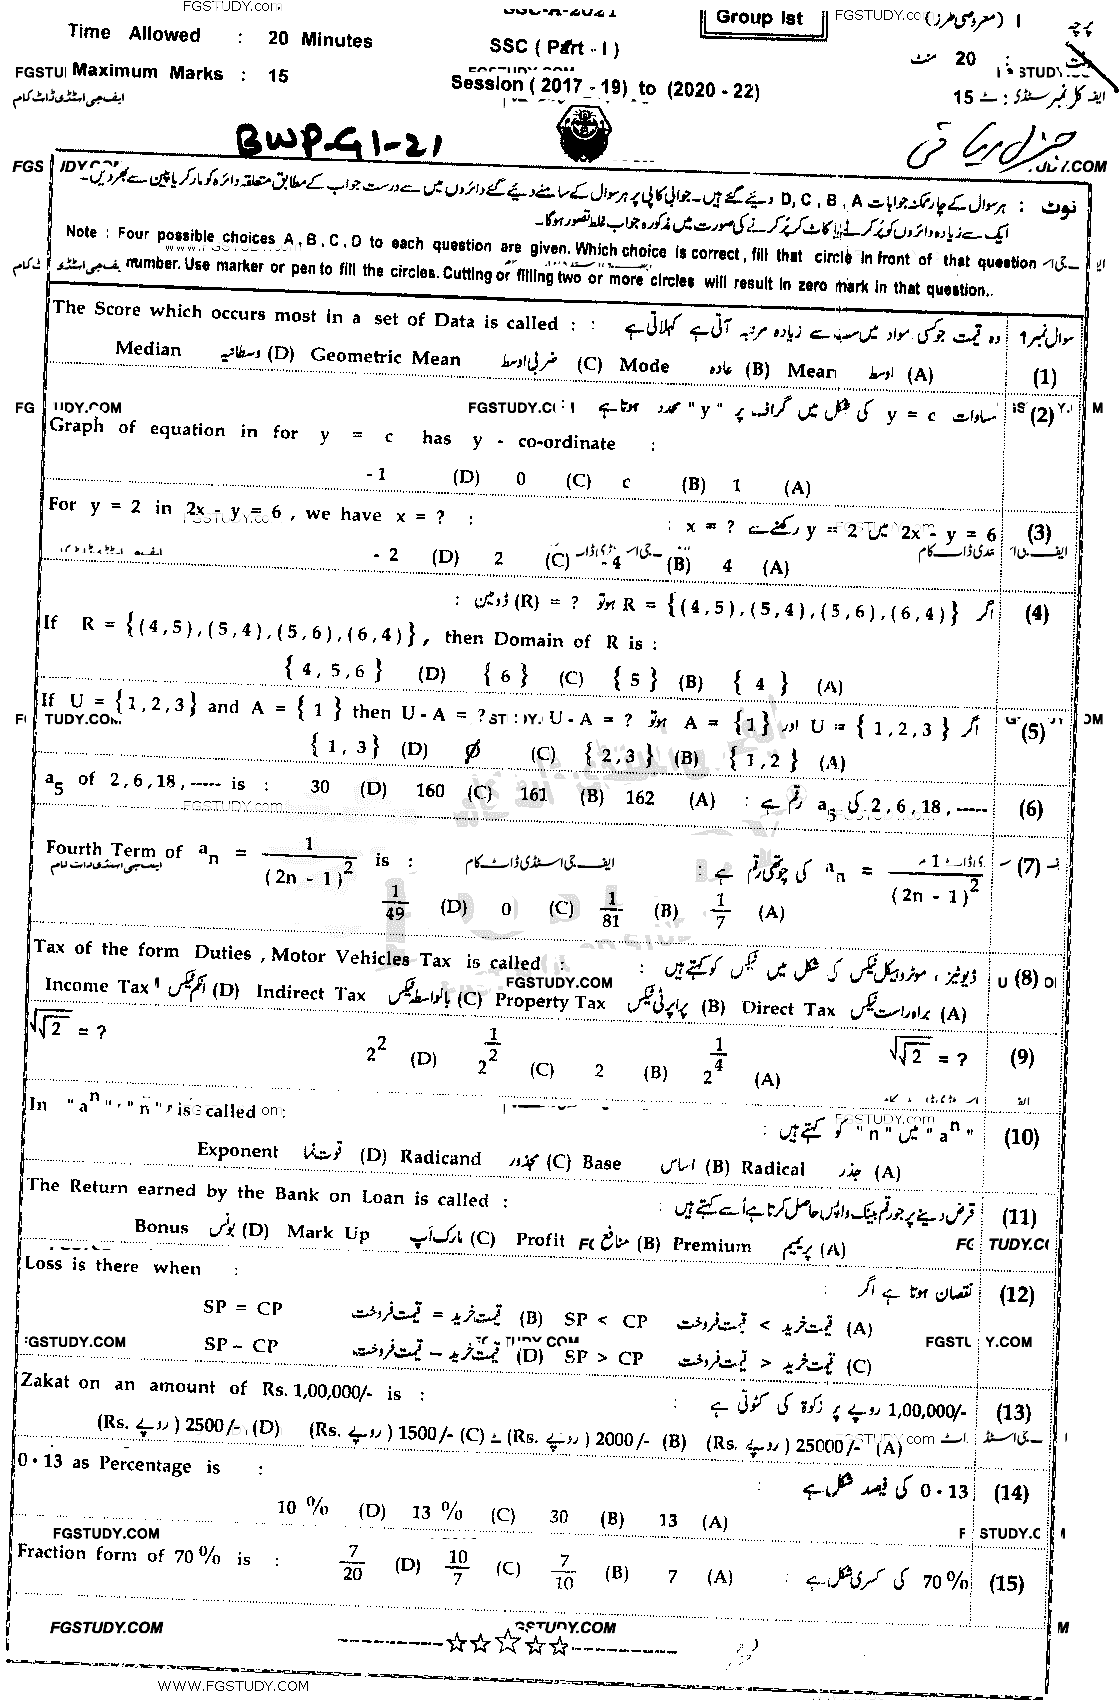 FGSTUDY.com
SSC-A-2021
Group Ist
FGSTUDY.co
پرچہ I (معروضی طرز)
Time Allowed : 20 Minutes
SSC ( Part - I )
20 منٹ
Maximum Marks : 15
Session ( 2017 - 19) to (2020 - 22)
15
BWP-G1-21
جنرل ریاضی
نوٹ : ہر سوال کے چار ممکنہ جوابات D, C, B, A دیئے گئے ہیں۔ جوابی کاپی پر ہر سوال کے سامنے دیئے گئے دائروں میں سے درست جواب کے مطابق متعلقہ دائرہ کو مارکر یا پین سے بھر دیں۔
ایک سے زیادہ دائروں کو پُر کرنے یا کاٹ کر پُر کرنے کی صورت میں مذکورہ جواب غلط تصور ہوگا۔
Note : Four possible choices A, B, C, D to each question are given. Which choice is correct, fill that circle in front of that question
number. Use marker or pen to fill the circles. Cutting or filling two or more circles will result in zero mark in that question..
The Score which occurs most in a set of Data is called : : وہ قیمت جو کسی مواد میں سب سے زیادہ مرتبہ آتی ہے کہلاتی ہے سوال نمبر 1
Median وسطانیہ (D) Geometric Mean ضربی اوسط (C) Mode عادہ (B) Mean اوسط (A) (1)
مساوات y = c کی شکل میں گراف پر "y" محدد ہوتا ہے (2)
Graph of equation in for y = c has y - co-ordinate :
-1 (D) 0 (C) c (B) 1 (A)
For y = 2 in 2x - y = 6 , we have x = ? : : x = ? رکھنے سے y = 2 میں 2x - y = 6 (3)
- 2 (D) 2 (C) - 4 (B) 4 (A)
اگر R = {(4,5),(5,4),(5,6),(6,4)} ہو تو ? = (R) ڈومین : (4)
If R = {(4,5),(5,4),(5,6),(6,4)} , then Domain of R is :
{ 4, 5, 6 } (D) { 6 } (C) { 5 } (B) { 4 } (A)
If U = {1,2,3} and A = { 1 } then U - A = ? U - A = ? ہو تو A = {1} اور U = { 1,2,3 } اگر (5)
{ 1, 3 } (D) ∅ (C) { 2,3 } (B) { 1,2 } (A)
a5 of 2, 6, 18, ----- is : 30 (D) 160 (C) 161 (B) 162 (A) : 2, 6, 18, ----- کی a5 رقم ہے (6)
Fourth Term of an = 1/(2n - 1)^2 is : : an = 1/(2n - 1)^2 کی چوتھی رقم ہے (7)
1/49 (D) 0 (C) 1/81 (B) 1/7 (A)
Tax of the form Duties , Motor Vehicles Tax is called : : ڈیوٹیز ، موٹر وہیکل ٹیکس کی شکل میں ٹیکس کو کہتے ہیں (8)
Income Tax انکم ٹیکس (D) Indirect Tax بالواسطہ ٹیکس (C) Property Tax پراپرٹی ٹیکس (B) Direct Tax براہ راست ٹیکس (A)
√√2 = ? √√2 = ? (9)
2^2 (D) 2^1/2 (C) 2 (B) 2^1/4 (A)
In "a^n" , "n" is called : : "a^n" میں "n" کو کہتے ہیں (10)
Exponent قوت نما (D) Radicand مجذور (C) Base اساس (B) Radical جذر (A)
The Return earned by the Bank on Loan is called : قرض دینے پر جو رقم بینک واپس حاصل کرتا ہے اُسے کہتے ہیں : (11)
Bonus بونس (D) Mark Up مارک اَپ (C) Profit منافع (B) Premium پریمیم (A)
Loss is there when : : نقصان ہوتا ہے اگر (12)
SP = CP قیمت خرید = قیمت فروخت (B) SP < CP قیمت خرید > قیمت فروخت (A)
SP - CP قیمت خرید - قیمت فروخت (D) SP > CP قیمت خرید < قیمت فروخت (C)
Zakat on an amount of Rs. 1,00,000/- is : : 1,00,000/- روپے پر زکوٰۃ کی کٹوتی ہے (13)
(Rs. روپے ) 2500/- (D) (Rs. روپے ) 1500/- (C) (Rs. روپے ) 2000/- (B) (Rs. روپے ) 25000/- (A)
0·13 as Percentage is : : 0·13 کی فیصد شکل ہے (14)
10 % (D) 13 % (C) 30 (B) 13 (A)
FGSTUDY.COM
Fraction form of 70% is : 7/20 (D) 10/7 (C) 7/10 (B) 7 (A) : 70% کی کسری شکل ہے (15)
FGSTUDY.COM
WWW.FGSTUDY.COM